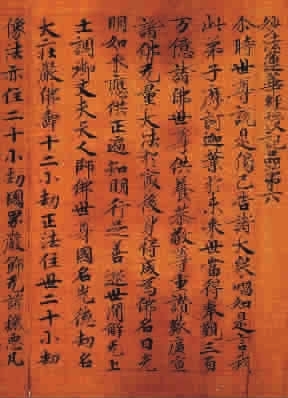 妙法蓮華經授記品第六
尒時世尊說是偈已告諸大衆唱如是言我
此弟子摩訶迦葉於未來世當得奉覲三百
万億諸佛世尊供養恭敬尊重讚歎廣宣
諸佛无量大法於最後身得成爲佛名曰光
明如來應供正遍知明行足善逝世間解无上
士調御丈夫天人師佛世尊國名光德劫名
大莊嚴佛壽十二小劫正法住世二十小劫
像法亦住二十小劫國界嚴飾无諸穢惡瓦